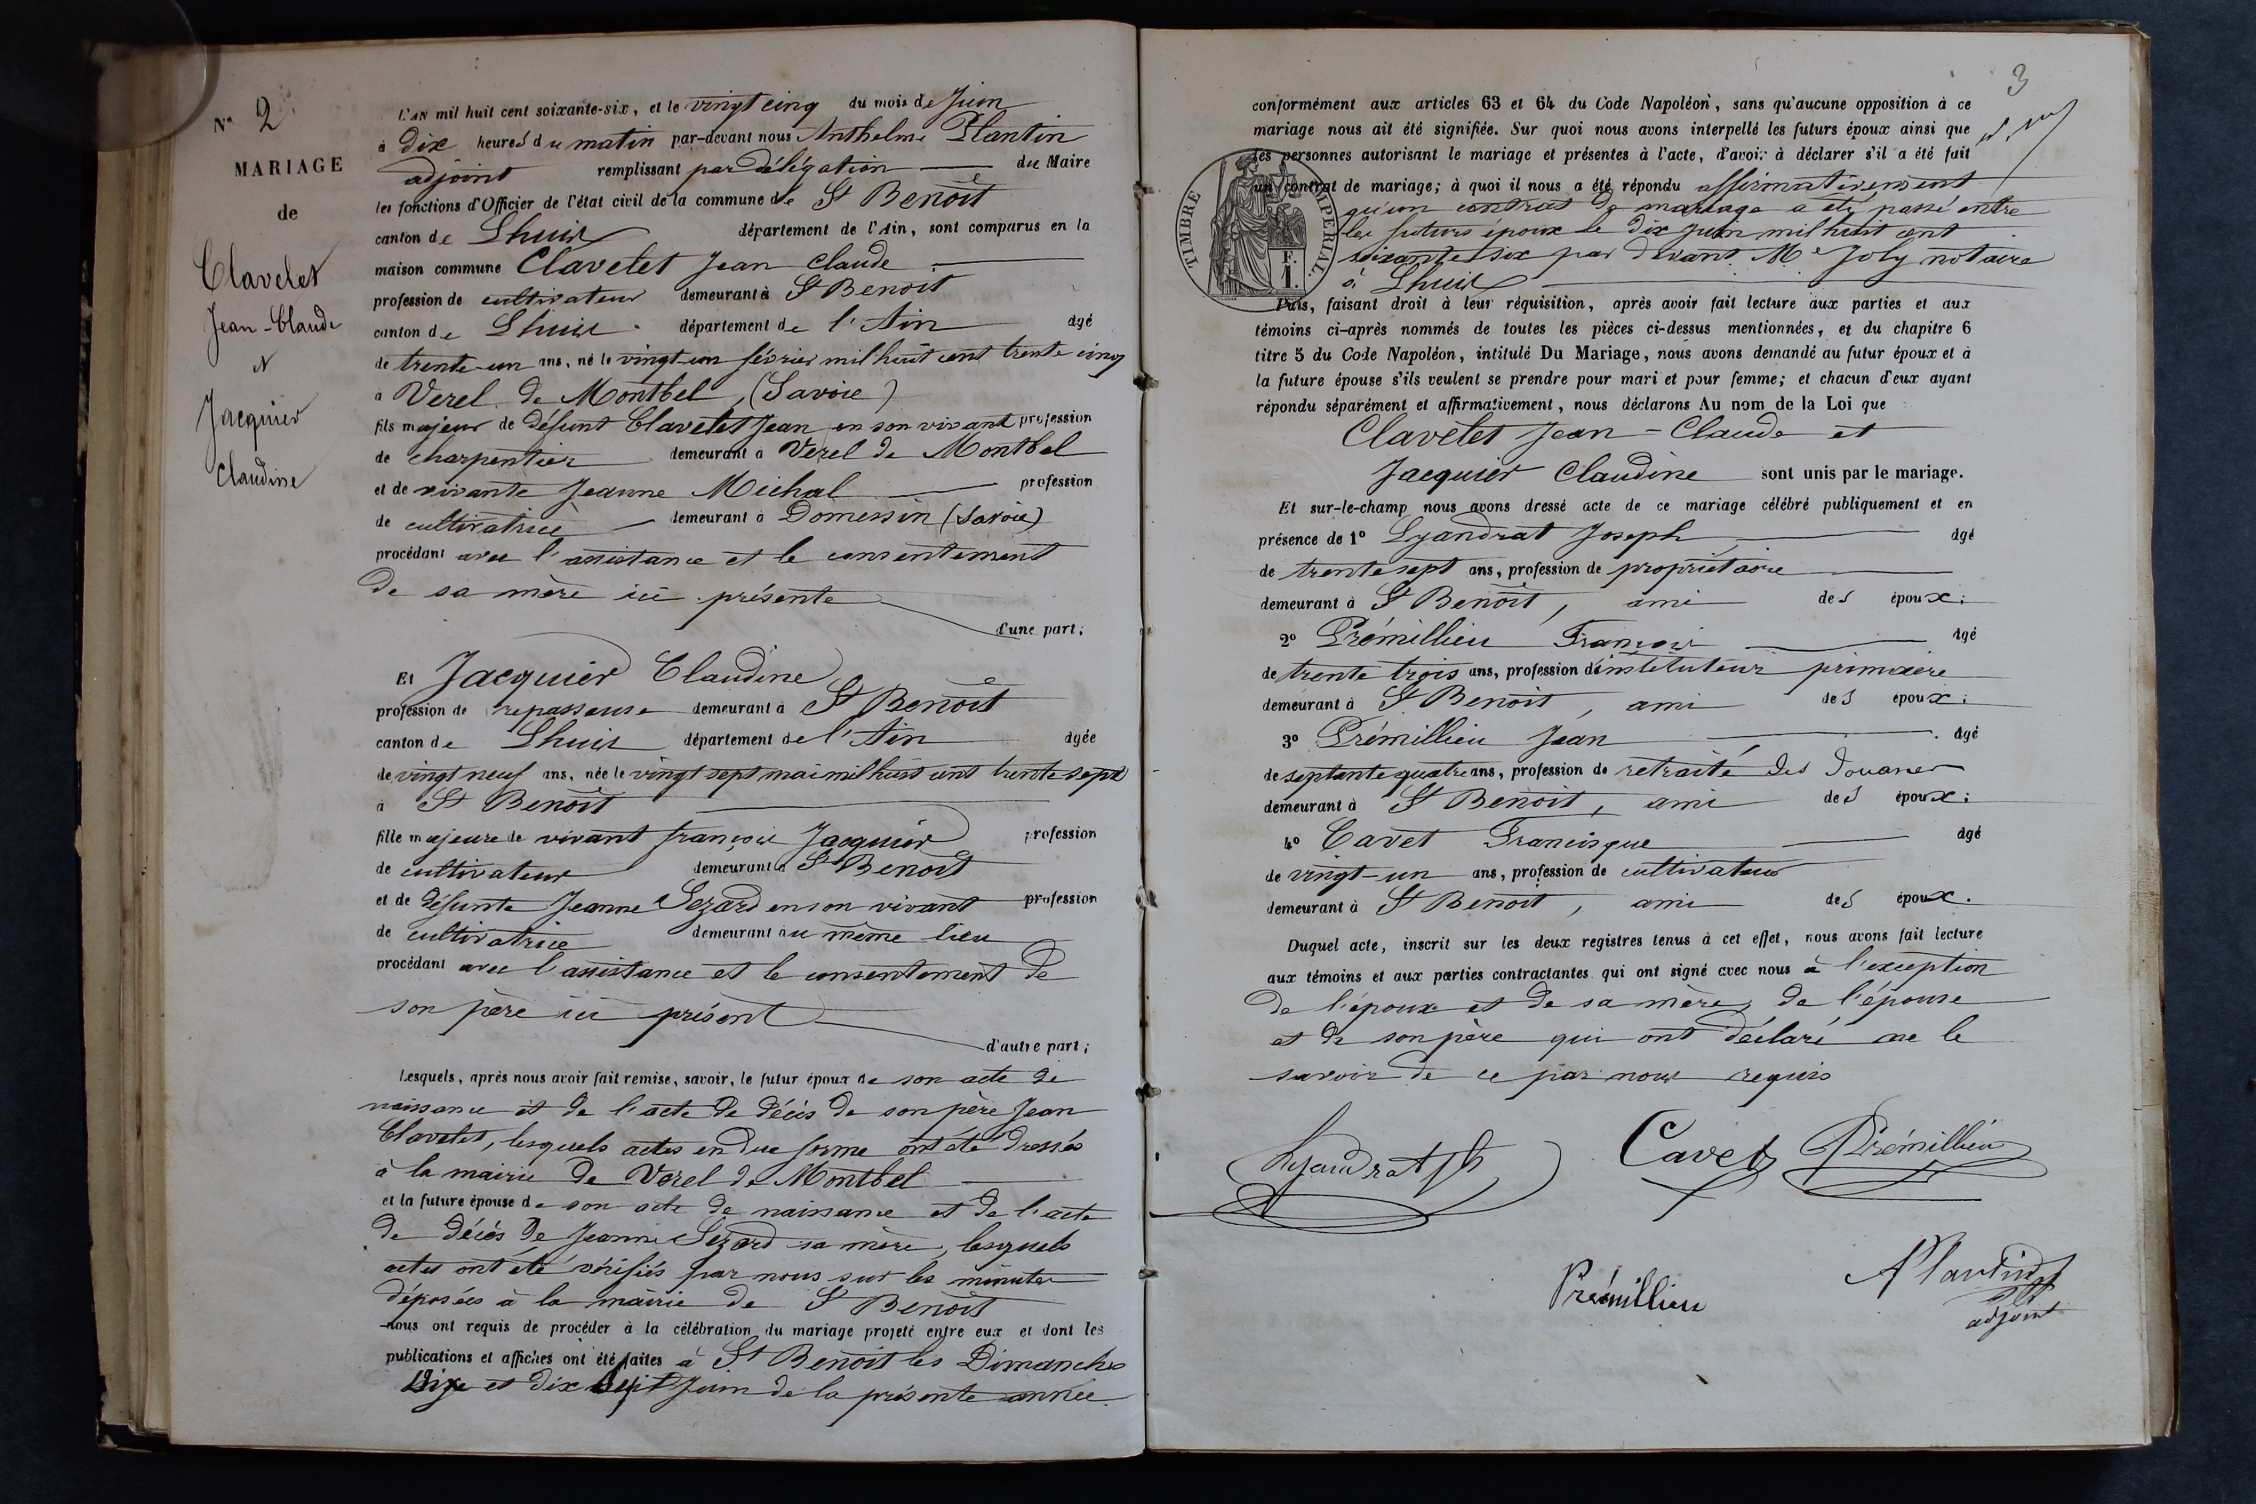 Nº 2
MARIAGE
de
Clavelet
Jean-Claude
et
Jacquier
Claudine
L'AN mil huit cent soixante-six, et le vingt cinq du mois de Juin
à dix heures du matin par-devant nous Anthelme Plantin
adjoint remplissant par délégation du Maire
les fonctions d'Officier de l'état civil de la commune de St Benoît
canton de Lhuis département de l'Ain, sont comparus en la
maison commune Clavelet Jean Claude
profession de cultivateur demeurant à St Benoit
canton de Lhuis département de l'Ain âgé
de trente-un ans, né le vingt-un février mil huit cent trente cinq
à Verel de Montbel, (Savoie)
fils majeur de défunt Clavelet Jean en son vivant profession
de charpentier demeurant à Verel de Montbel
et de vivante Jeanne Michal profession
de cultivatrice demeurant à Domessin (Savoie)
procédant avec l'assistance et le consentement
de sa mère ici présente
d'une part;
Et Jacquier Claudine
profession de repasseuse demeurant à St Benoit
canton de Lhuis département de l'Ain âgée
de vingt neuf ans, née le vingt sept mai mil huit cent trente sept
à St Benoît
fille majeure de vivant françois Jacquier profession
de cultivateur demeurant à St Benoit
et de défunte Jeanne Sezard en son vivant profession
de cultivatrice demeurant au même lieu
procédant avec l'assistance et le consentement de
son père ici présent
d'autre part;
Lesquels, après nous avoir fait remise, savoir, le futur époux de son acte de
naissance et de l'acte de décès de son père Jean
Clavelet, lesquels actes en due forme ont été dressés
à la mairie de Verel de Montbel
et la future épouse de son acte de naissance et de l'acte
de décès de Jeanne Sezard sa mère, lesquels
actes ont été vérifiés par nous sur les minutes
déposées à la mairie de St Benoît
nous ont requis de procéder à la célébration du mariage projeté entre eux et dont les
publications et affiches ont été faites à St Benoit les Dimanches
Dix et dix sept Juin de la présente année
3
conformément aux articles 63 et 64 du Code Napoléon, sans qu'aucune opposition à ce
mariage nous ait été signifiée. Sur quoi nous avons interpellé les futurs époux ainsi que
les personnes autorisant le mariage et présentes à l'acte, d'avoir à déclarer s'il a été fait
un contrat de mariage; à quoi il nous a été répondu affirmativement
qu'un contrat de mariage a été passé entre
les futurs époux le dix juin mil huit cent
soixante six par devant Me Joly notaire
à Lhuis
TIMBRE IMPERIAL
F.
1.
Puis, faisant droit à leur réquisition, après avoir fait lecture aux parties et aux
témoins ci-après nommés de toutes les pièces ci-dessus mentionnées, et du chapitre 6
titre 5 du Code Napoléon, intitulé Du Mariage, nous avons demandé au futur époux et à
la future épouse s'ils veulent se prendre pour mari et pour femme; et chacun d'eux ayant
répondu séparément et affirmativement, nous déclarons Au nom de la Loi que
Clavelet Jean-Claude et
Jacquier Claudine sont unis par le mariage.
Et sur-le-champ nous avons dressé acte de ce mariage célébré publiquement et en
présence de 1º Lyandrat Joseph âgé
de trente sept ans, profession de propriétaire
demeurant à St Benoît, ami des époux;
2º Prémillieu François âgé
de trente trois ans, profession d'instituteur primaire
demeurant à St Benoit, ami des époux;
3º Prémillieu Jean âgé
de septante quatre ans, profession de retraité des Douanes
demeurant à St Benoit, ami des époux;
4º Cavet Francisque âgé
de vingt-un ans, profession de cultivateur
demeurant à St Benoit, ami des époux.
Duquel acte, inscrit sur les deux registres tenus à cet effet, nous avons fait lecture
aux témoins et aux parties contractantes qui ont signé avec nous à l'exception
de l'époux et de sa mère, de l'épouse
et de son père qui ont déclaré ne le
savoir de ce par nous requis
Lyandrat Jh Cavet Prémillieu
Prémillieu Plantin
adjoint